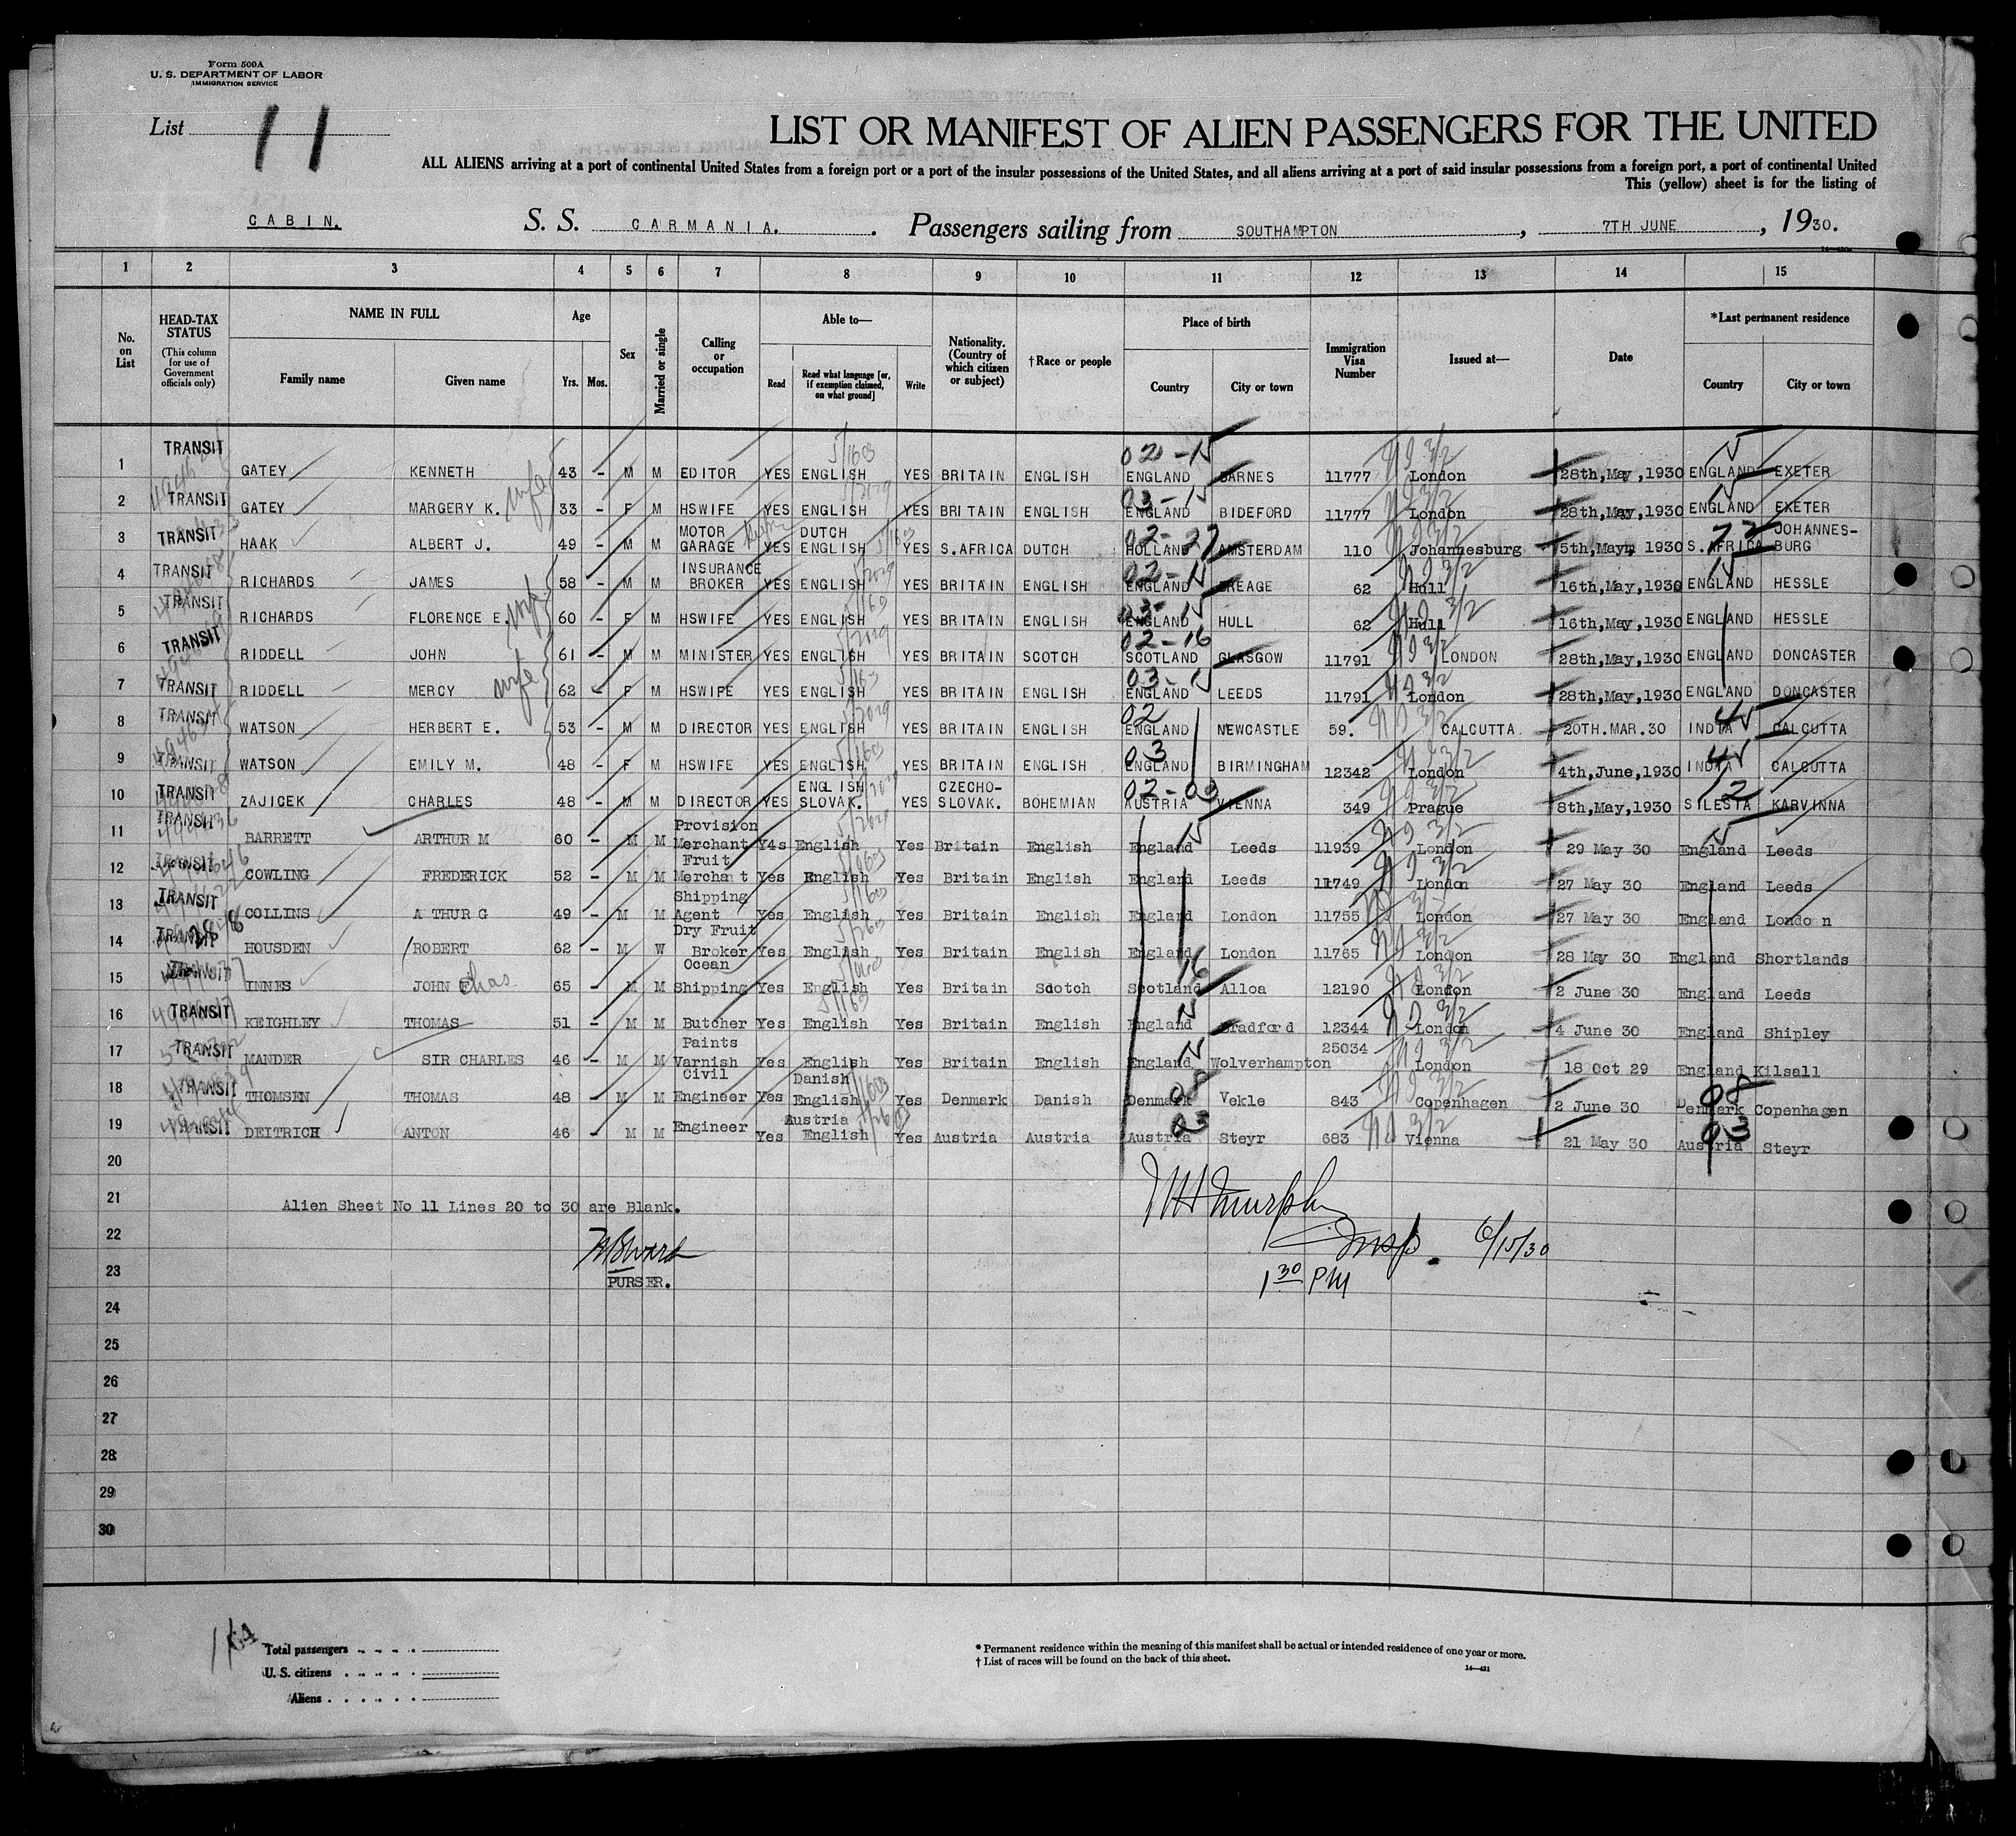 Form 500A
U. S. DEPARTMENT OF LABOR
IMMIGRATION SERVICE
List 11
LIST OR MANIFEST OF ALIEN PASSENGERS FOR THE UNITED
ALL ALIENS arriving at a port of continental United States from a foreign port or a port of the insular possessions of the United States, and all aliens arriving at a port of said insular possessions from a foreign port, a port of continental United
This (yellow) sheet is for the listing of
CABIN. S. S. CARMANIA. Passengers sailing from SOUTHAMPTON, 7TH JUNE, 1930.
1 2 3 4 5 6 7 8 9 10 11 12 13 14 15
No. on List
HEAD-TAX STATUS (This column for use of Government officials only)
NAME IN FULL Family name Given name
Age Yrs. Mos.
Sex
Married or single
Calling or occupation
Able to— Read Read what language [or, if exemption claimed, on what ground] Write
Nationality. (Country of which citizen or subject)
†Race or people
Place of birth Country City or town
Immigration Visa Number
Issued at—
Date
*Last permanent residence Country City or town
1 TRANSIT GATEY KENNETH 43 – M M EDITOR YES ENGLISH YES BRITAIN ENGLISH 02-15 ENGLAND BARNES 11777 London 28th,May,1930 ENGLAND EXETER
2 TRANSIT GATEY MARGERY K. wife 33 – F M HSWIFE YES ENGLISH YES BRITAIN ENGLISH 03-15 ENGLAND BIDEFORD 11777 London 28th,May,1930 ENGLAND EXETER
3 TRANSIT HAAK ALBERT J. 49 – M M MOTOR GARAGE YES DUTCH ENGLISH YES S.AFRICA DUTCH 02-27 HOLLAND AMSTERDAM 110 Johannesburg 5th,May, 1930 S.AFRICA JOHANNES-BURG
4 TRANSIT RICHARDS JAMES 58 – M M INSURANCE BROKER YES ENGLISH YES BRITAIN ENGLISH 02-15 ENGLAND BREAGE 62 Hull 16th,May,1930 ENGLAND HESSLE
5 TRANSIT RICHARDS FLORENCE E. wife 60 – F M HSWIFE YES ENGLISH YES BRITAIN ENGLISH 03-15 ENGLAND HULL 62 Hull 16th,May,1930 ENGLAND HESSLE
6 TRANSIT RIDDELL JOHN 61 – M M MINISTER YES ENGLISH YES BRITAIN SCOTCH 02-16 SCOTLAND GLASGOW 11791 LONDON 28th,May,1930 ENGLAND DONCASTER
7 TRANSIT RIDDELL MERCY wife 62 – F M HSWIFE YES ENGLISH YES BRITAIN ENGLISH 03-15 ENGLAND LEEDS 11791 London 28th,May,1930 ENGLAND DONCASTER
8 TRANSIT WATSON HERBERT E. 53 – M M DIRECTOR YES ENGLISH YES BRITAIN ENGLISH 02 ENGLAND NEWCASTLE 59. CALCUTTA. 20TH.MAR.30 INDIA CALCUTTA
9 TRANSIT WATSON EMILY M. 48 – F M HSWIFE YES ENGLISH YES BRITAIN ENGLISH 03 ENGLAND BIRMINGHAM 12342 London 4th,June,1930 INDIA CALCUTTA
10 TRANSIT ZAJICEK CHARLES 48 – M M DIRECTOR YES ENGLISH SLOVAK. YES CZECHO-SLOVAK. BOHEMIAN 02-03 AUSTRIA VIENNA 349 Prague 8th,May,1930 12 SILESIA KARVINNA
11 TRANSIT BARRETT ARTHUR M 60 – M M Provision Merchant Y4s English Yes Britain English England Leeds 11939 London 29 May 30 England Leeds
12 TRANSIT COWLING FREDERICK 52 – M M Fruit Merchant Yes English Yes Britain English England Leeds 11749 London 27 May 30 England Leeds
13 TRANSIT COLLINS A THUR G 49 – M M Shipping Agent Yes English Yes Britain English England London 11755 London 27 May 30 England London
14 TRANSIT HOUSDEN ROBERT 62 – M W Dry Fruit Broker Yes English Yes Britain English England London 11765 London 28 May 30 England Shortlands
15 TRANSIT INNES JOHN F Chas 65 – M M Ocean Shipping Yes English Yes Britain Scotch 16 Scotland Alloa 12190 London 2 June 30 England Leeds
16 TRANSIT KEIGHLEY THOMAS 51 – M M Butcher Yes English Yes Britain English England Bradford 12344 London 4 June 30 England Shipley
17 TRANSIT MANDER SIR CHARLES 46 – M M Paints Varnish Yes English Yes Britain English England Wolverhampton 25034 London 18 Oct 29 England Kilsall
18 TRANSIT THOMSEN THOMAS 48 – M M Civil Engineer Yes Danish English Yes Denmark Danish 08 Denmark Vekle 843 Copenhagen 2 June 30 08 Denmark Copenhagen
19 TRANSIT DEITRICH ANTON 46 – M M Engineer Yes Austria English Yes Austria Austria 03 Austria Steyr 683 Vienna 21 May 30 03 Austria Steyr
20
21 Alien Sheet No 11 Lines 20 to 30 are Blank.
22 Murphy Insp. 6/15/30
23 PURSER. 1 30 PM
24
25
26
27
28
29
30
Total passengers
U. S. citizens
Aliens
* Permanent residence within the meaning of this manifest shall be actual or intended residence of one year or more.
† List of races will be found on the back of this sheet.
14—431